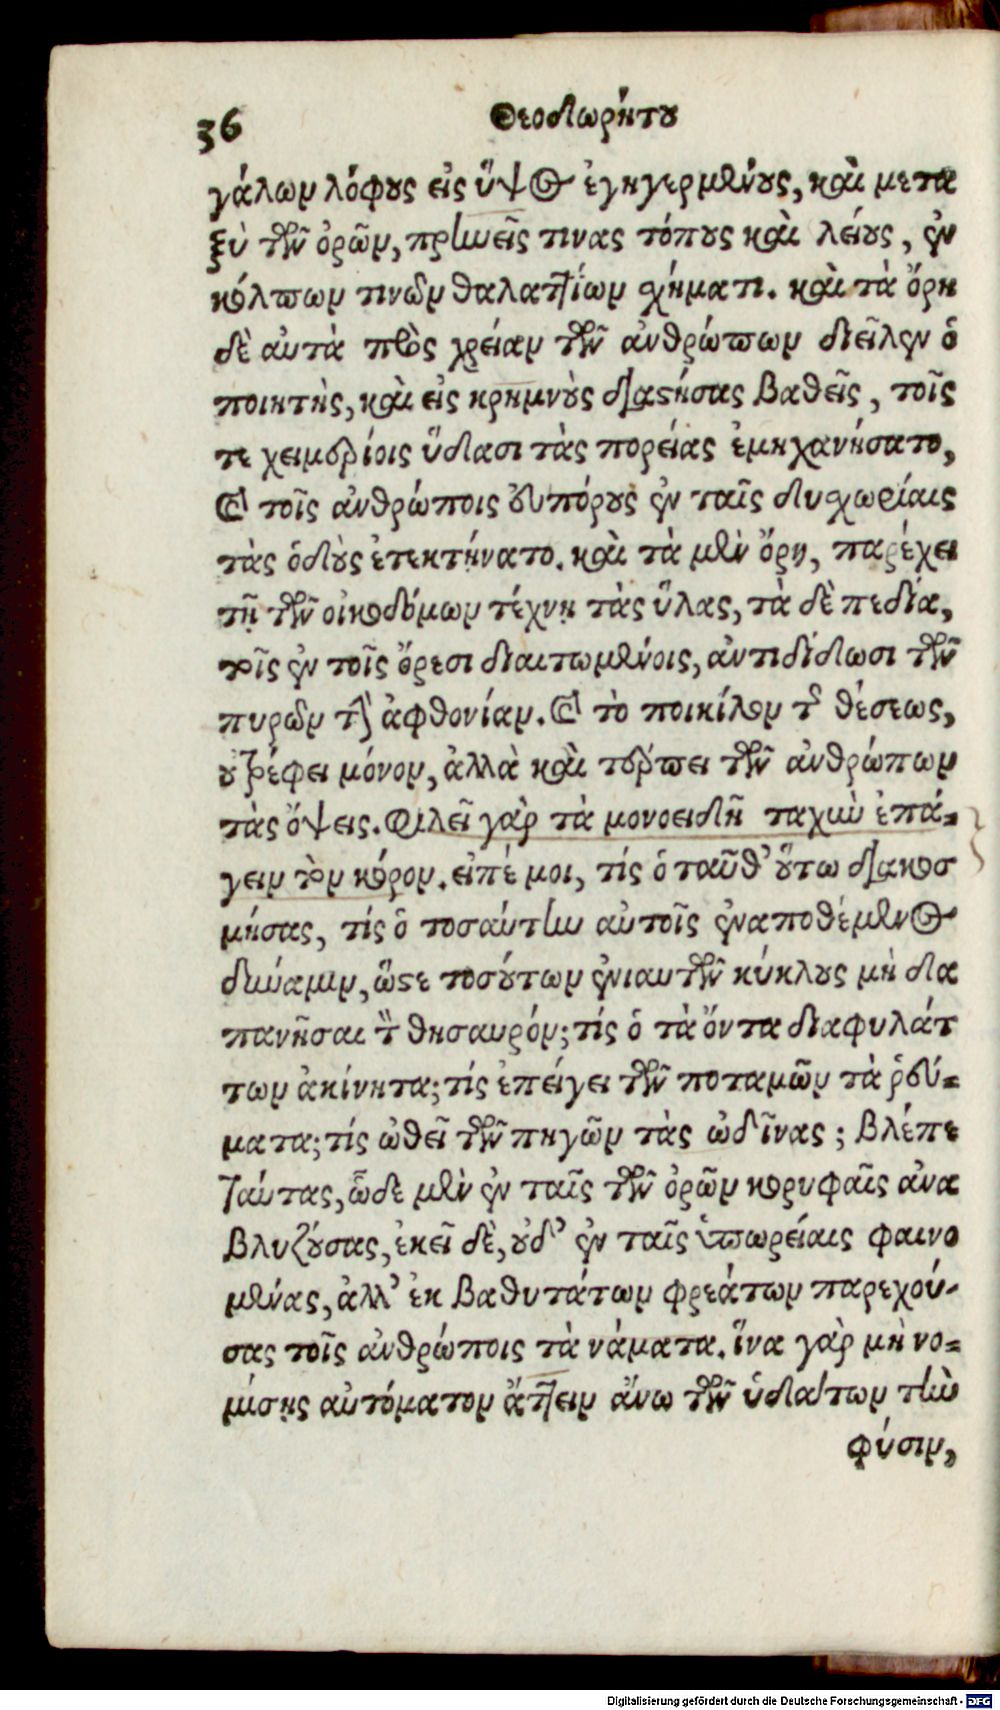 36 Θεοδωρήτου
γάλων λόφους εἰς ὕψος ἐγηγερμένους, καὶ μετα
ξὺ τῶν ὀρῶν, πρηνεῖς τινας τόπους καὶ λείους, ἐν
κόλπων τινῶν θαλαττίων σχήματι. καὶ τὰ ὄρη
δὲ αὐτὰ πρὸς χρείαν τῶν ἀνθρώπων διεῖλεν ὁ
ποιητὴς, καὶ εἰς κρημνοὺς διαστήσας βαθεῖς, τοῖς
τε χειμερίοις ὕδασι τὰς πορείας ἐμηχανήσατο,
καὶ τοῖς ἀνθρώποις εὐπόρους ἐν ταῖς δυσχωρίαις
τὰς ὁδοὺς ἐτεκτήνατο. καὶ τὰ μὲν ὄρη, παρέχει
τῇ τῶν οἰκοδόμων τέχνῃ τὰς ὕλας, τὰ δὲ πεδία,
τοῖς ἐν τοῖς ὄρεσι διαιτωμένοις, ἀντιδίδωσι τῶν
πυρῶν τὴν ἀφθονίαν. καὶ τὸ ποικίλον τῆς θέσεως,
οὐ τρέφει μόνον, ἀλλὰ καὶ τέρπει τῶν ἀνθρώπων
τὰς ὄψεις. Φιλεῖ γὰρ τὰ μονοειδῆ ταχὺν ἐπά=
γειν τὸν κόρον. εἰπέ μοι, τίς ὁ ταῦθ' οὕτω διακοσ
μήσας, τίς ὁ τοσαύτην αὐτοῖς ἐναποθέμενος
δύναμιν, ὥστε τοσούτων ἐνιαυτῶν κύκλους μὴ δα
πανῆσαι τὸν θησαυρόν; τίς ὁ τὰ ὄντα διαφυλάτ
των ἀκίνητα; τίς ἐπείγει τῶν ποταμῶν τὰ ῥεύ=
ματα; τίς ὠθεῖ τῶν πηγῶν τὰς ὠδῖνας; βλέπε
ταύτας, ὧδε μὲν ἐν ταῖς τῶν ὀρῶν κορυφαῖς ἀνα
βλυζούσας, ἐκεῖ δὲ, οὐδ' ἐν ταῖς ὑπωρείαις φαινο
μένας, ἀλλ' ἐκ βαθυτάτων φρεάτων παρεχού-
σας τοῖς ἀνθρώποις τὰ νάματα. ἵνα γὰρ μὴ νο=
μίσῃς αὐτόματον ἄττειν ἄνω τῶν ὑδάτων τὴν
φύσιν,
Digitalisierung gefördert durch die Deutsche Forschungsgemeinschaft - DFG